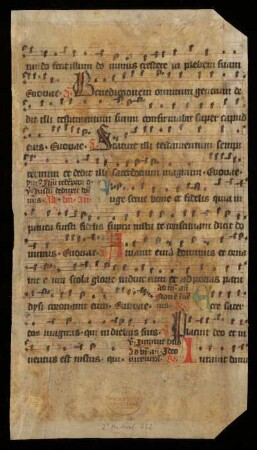 rando fecit illum do minus crescere in plebem suam
Euouae Benedictionem omnium gentium de
dit illi testamentum suum confirmavit super caput
eius Euouae Statuit illi testamentum sempi
ternum et dedit illi sacerdocium magnum Euouae
uge serve bone et fidelis quia in
pauca fuisti fidelis supra multa te constituam dicit do
minus Euouae Amavit eum dominus et orna
vit e um stola glorie induit eum et ad portas para
dysi coronavit eum Euouae Ecce sacer
dos magnus qui in diebus suis Placuit deo et in
ventus est iustus qui Iuravit domi